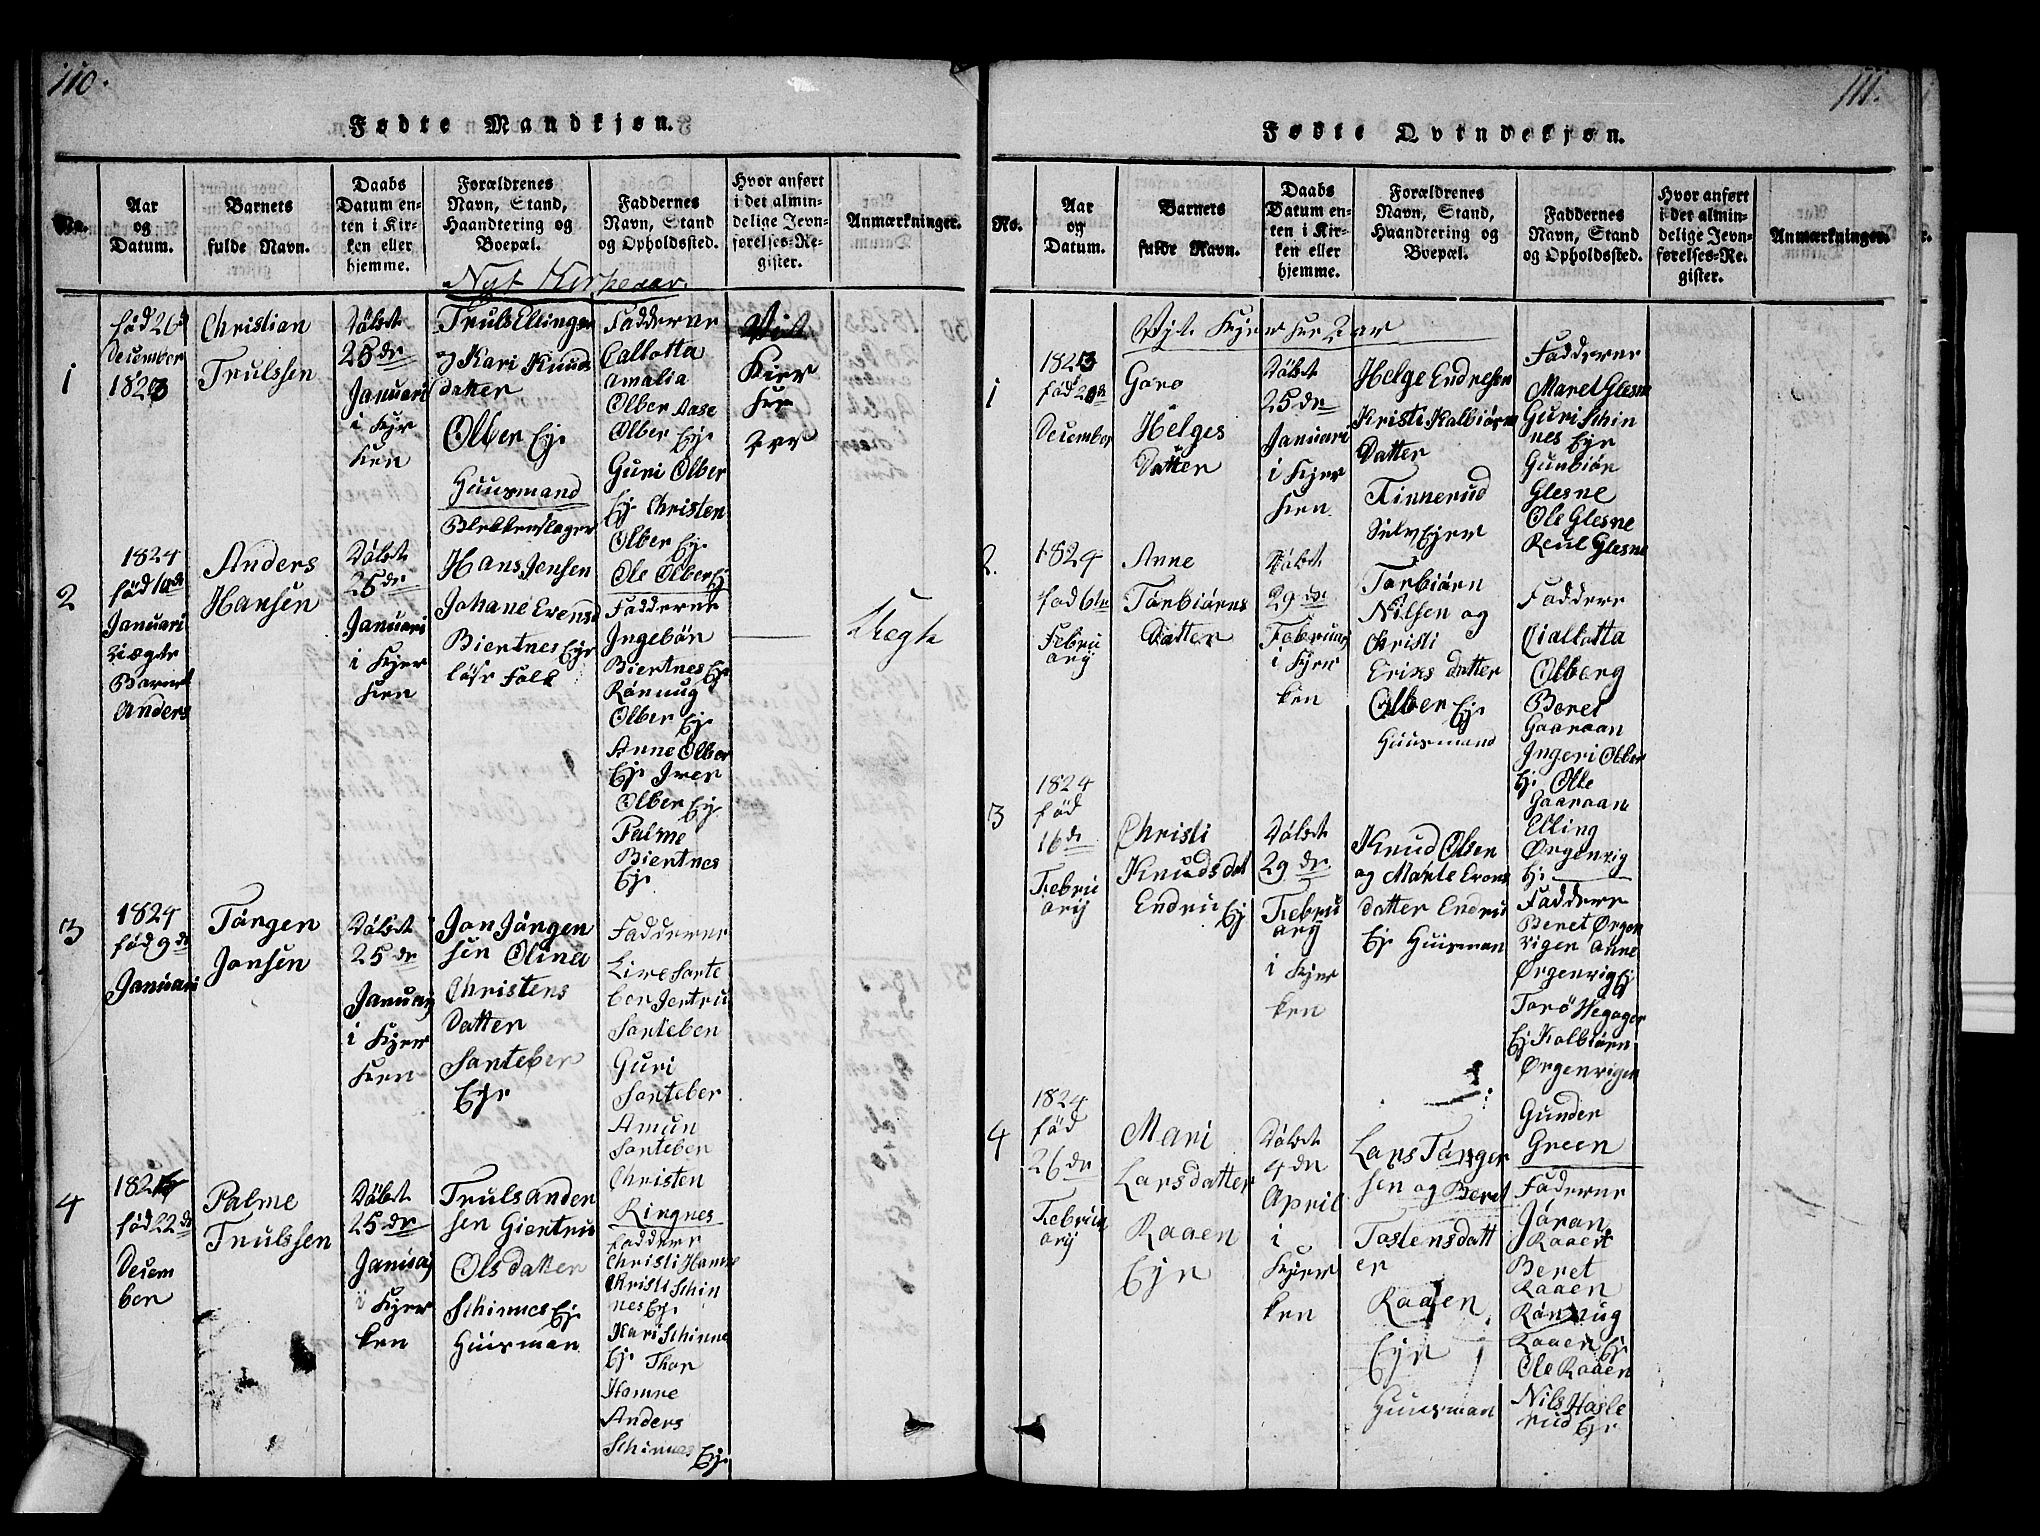 110.
Fødte Mandkjøn.
No.
Aar
og
Datum.
Barnets
fulde Navn.
Daabs
Datum en-
ten i Kir-
ken eller
hjemme.
Forældrenes
Navn, Stand,
Haandtering og
Boepæl.
Faddernes
Navn, Stand
og Opholdssted.
Hvor anført
i det almin-
delige Jevn-
førelses-Re-
gister.
Anmærkninger.
Nyt Kirkeaar.
1
fød 26d
December
1823
Christian
Trulssen
Døbt
25 de
Januari
i Kjer
ken
Truls Ellingsen
Kari Knuds
datter
Olber Eje
Huusmand
Blekkenslager
Fadderne
Callotta
Amalia
Olber Aase
Olber Eje
Guri Olber
Eje Christen
Olber Eje
Ole Olber Ej
Nyt
Kier
ke
Aar
2
1824
fød 10de
Januari
Barnet
Anders
Anders
Hansen
Døbt
25 de
Januari
i Kjer
ken
Hans Jensen
Johane Evensd
Biertnes Eje
løse Folk
Fadderne
Ingebør
Biertnes Eje
Rønnug
Olber Eje
Anne Olber
Eje Iver
Olber Eje
Palme
Biertnes
Eje
3
1824
fød 9 de
Januari
Jørgen
Jonsen
Døbt
25 de
Januarj
i Kjer
ken
Jon Jørgen
sen Olina
Christens
datter
Sorteber
Eje
Fadderne
Live Sorte
ber Jertru
Sorteber
Guri
Sorteber
Amun
Sorteber
Christen
Ringnes
4
fød 22de
Decem
ber
Palme
Trulssen
Døbt
25 de
Januarj
i Kjer
ken
Truls Anden
sen Giertru
Olsdatter
Schinnes Eje
Huusman
Fadderne
Christi Hamne
Christi Schin
nes Eje
Kari Schinne
Eje Thor
Hamne
Anders
Schinnes Eje
111.
Fødte Qvindekjøn.
No.
Aar
og
Datum.
Barnets
fulde Navn.
Daabs
Datum en-
ten i Kir-
ken eller
hjemme.
Forældrenes
Navn, Stand,
Haandtering og
Boepæl.
Faddernes
Navn, Stand
og Opholdssted.
Hvor anført
i det almin-
delige Jevn-
førelses-Re-
gister.
Anmærkninger.
Nyt Kjerke Aar
1
1823
fød 20de
December
Goro
Helges
Datter
Døbt
25 de
Januari
i Kjer
ken
Helge Endresen
Kristi Kolbiørn
Datter
Finnerud
Selv Ejer
Fadderne
Maret Glesne
Guri Schin
nes Eje
Gunbiør
Glesne
Ole Glesne
Reul Glesne
2
1824
fød 6te
Febru
arij
Anne
Torbiørns
Datter
Døbt
29 de
Februarj
i Kjer
ken
Torbiørn
Nilsen og
Christi
Eriks datter
Olber Eje
Huusmand
Faddere
Olberg
Beret
Gaaraan
Ingeri Olber
Ej Ole
Gaaraan
Elling
Ørgenvig
Ej
3
1824
fød
16 de
Febru
arij
Christi
Knudsdat
Endru Ej
Døbt
29 de
Febru
arij
i Kjer
ken
Knud Olsen
og Marte Evens
datter Endru
Eje Huusman
Faddere
Beret Ørgen
vigen Anne
Ørgenvig Ej
Torø Hegager
Ej Kolbiørn
Ørgenvigen
Gunder
Green
4
1824
fød
26 de
Febru
arij
Mari
Larsdatter
Raaen
Eje
Døbt
4 de
April
i
Kjer
ken
Lars Tørger
sen og Beret
Tostensdatt
er
Raaen
Eje
Huusman
Fadderne
Jøran
Raaen
Beret
Raaen
Rønnug
Raaen Eje
Ole Raaen
Nils Hasle
rud Eje